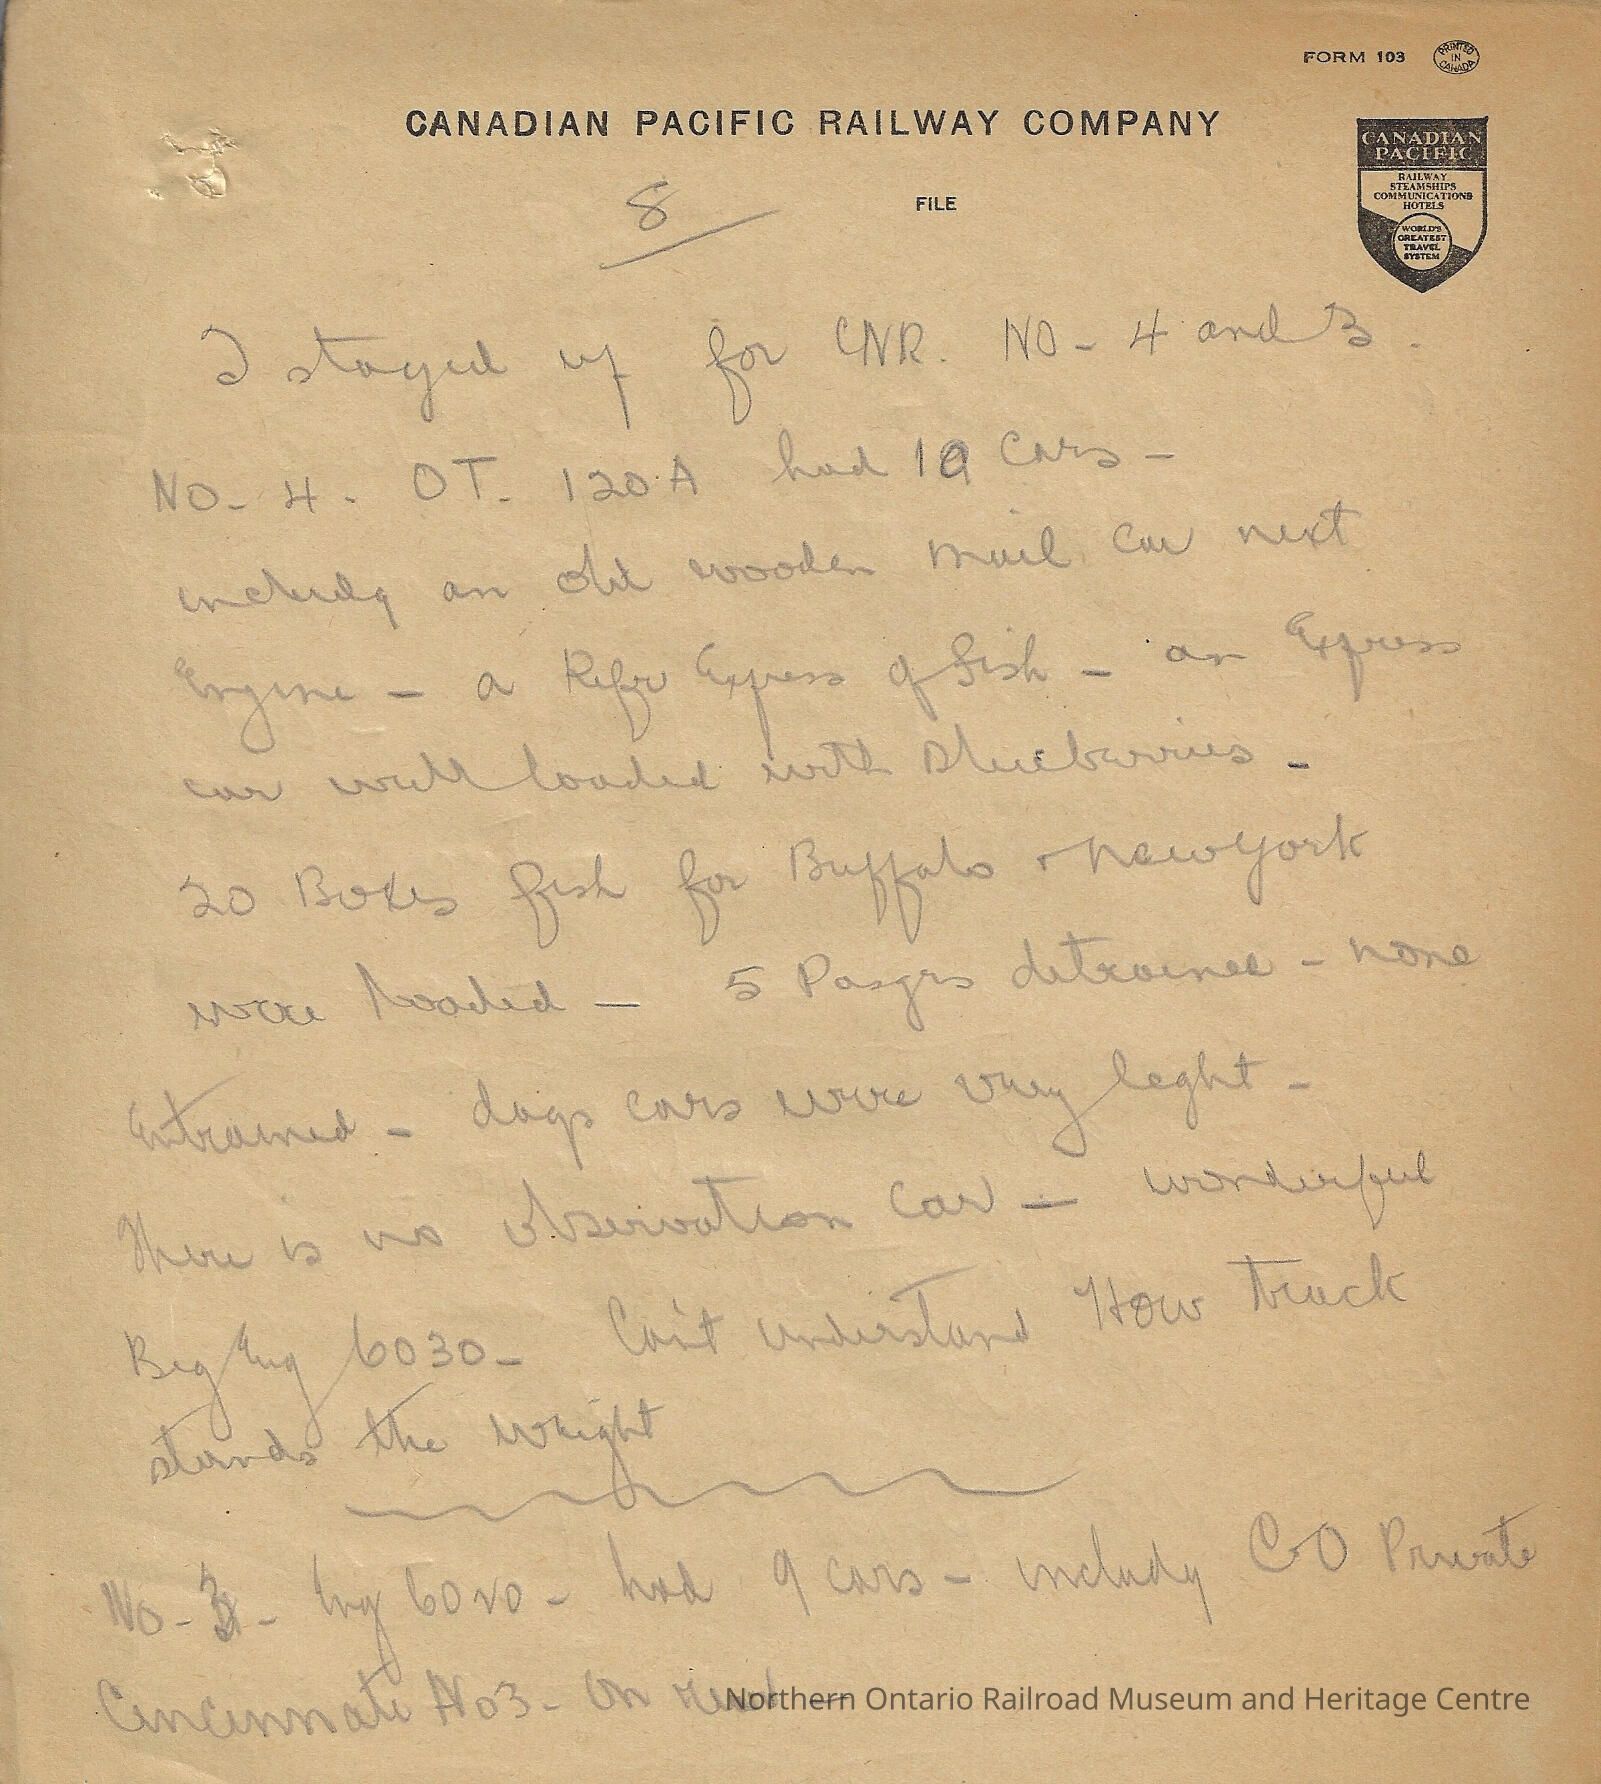 FORM 103 PRINTED IN CANADA
CANADIAN PACIFIC RAILWAY COMPANY
CANADIAN
PACIFIC
RAILWAY
STEAMSHIPS
COMMUNICATIONS
HOTELS
WORLD'S
GREATEST
TRAVEL
SYSTEM
8
FILE
I stayed up for CNR. NO- 4 and 3.
NO- 4. OT- 120A had 10 Cars -
includg an old wooden mail Car next
Engine - a Refr Express of Fish - an Express
car well loaded with Blueberries -
20 Boxes fish for Buffalo + New York
were loaded - 5 Pasgrs detrained - none
Entrained - days cars were very light -
There is no observation Car - wonderful
Big Eng 6030 - Can't understand How track
stands the weight
No- 3 - Eng 6020 - had 9 cars - includg CO Private
Cincinnati No 3 - On rear
Northern Ontario Railroad Museum and Heritage Centre